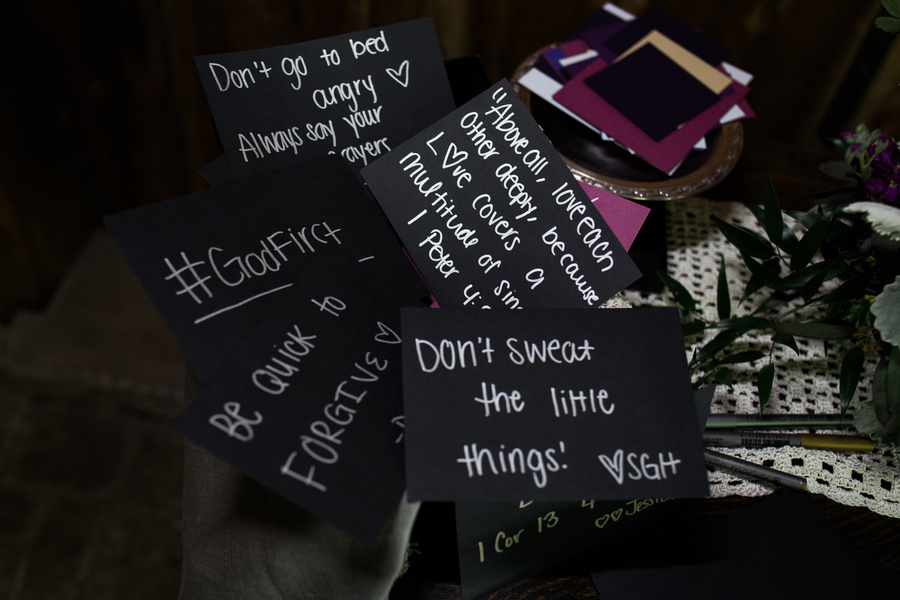 Don't go to bed
angry ♡
Always say your
#GodFirst
"Above all, love each
other deeply, because
L♡ve covers a
multitude of sins
1 Peter 4:
Be quick to
FORGIVE ♡
Don't sweat
the little
things! ♡SGH
1 Cor 13 4 ♡♡Jessica